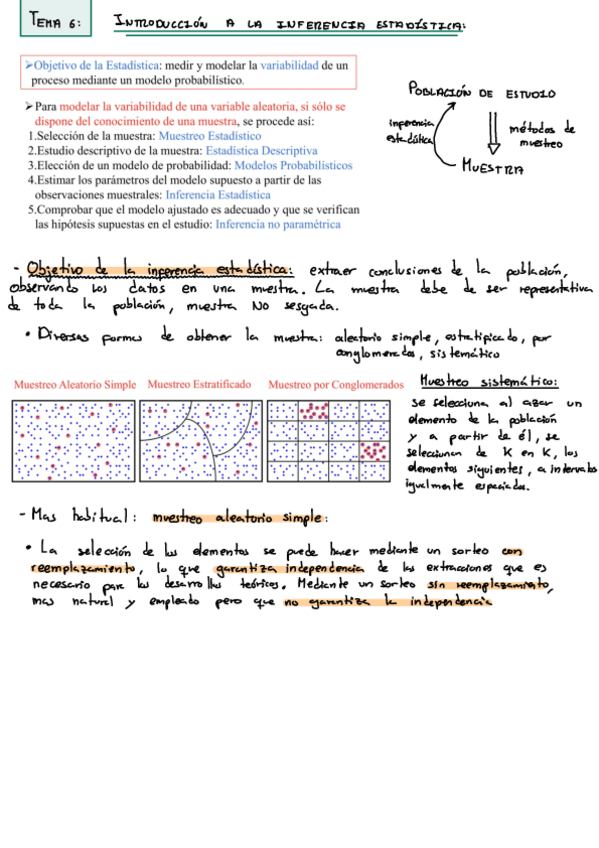 TEMA 6: INTRODUCCIÓN A LA INFERENCIA ESTADÍSTICA:
➢Objetivo de la Estadística: medir y modelar la variabilidad de un
proceso mediante un modelo probabilístico.
➢Para modelar la variabilidad de una variable aleatoria, si sólo se
dispone del conocimiento de una muestra, se procede así:
1.Selección de la muestra: Muestreo Estadístico
2.Estudio descriptivo de la muestra: Estadística Descriptiva
3.Elección de un modelo de probabilidad: Modelos Probabilísticos
4.Estimar los parámetros del modelo supuesto a partir de las
observaciones muestrales: Inferencia Estadística
5.Comprobar que el modelo ajustado es adecuado y que se verifican
las hipótesis supuestas en el estudio: Inferencia no paramétrica
POBLACIÓN DE ESTUDIO
inferencia
estadística
métodos de
muestreo
MUESTRA
- Objetivo de la inferencia estadística: extraer conclusiones de la población,
observando los datos en una muestra. La muestra debe de ser representativa
de toda la población, muestra NO sesgada.
• Diversas formas de obtener la muestra: aleatorio simple, estratificado, por
conglomerados, sistemático
Muestreo Aleatorio Simple Muestreo Estratificado Muestreo por Conglomerados
Muestreo sistemático:
se selecciona al azar un
elemento de la población
y a partir de él, se
seleccionan de K en K, los
elementos siguientes, a intervalos
igualmente espaciados.
- Mas habitual: muestreo aleatorio simple:
• La selección de los elementos se puede hacer mediante un sorteo con
reemplazamiento, lo que garantiza independencia de las extracciones que es
necesario para los desarrollos teóricos. Mediante un sorteo sin reemplazamiento,
mas natural y empleado pero que no garantiza la independencia